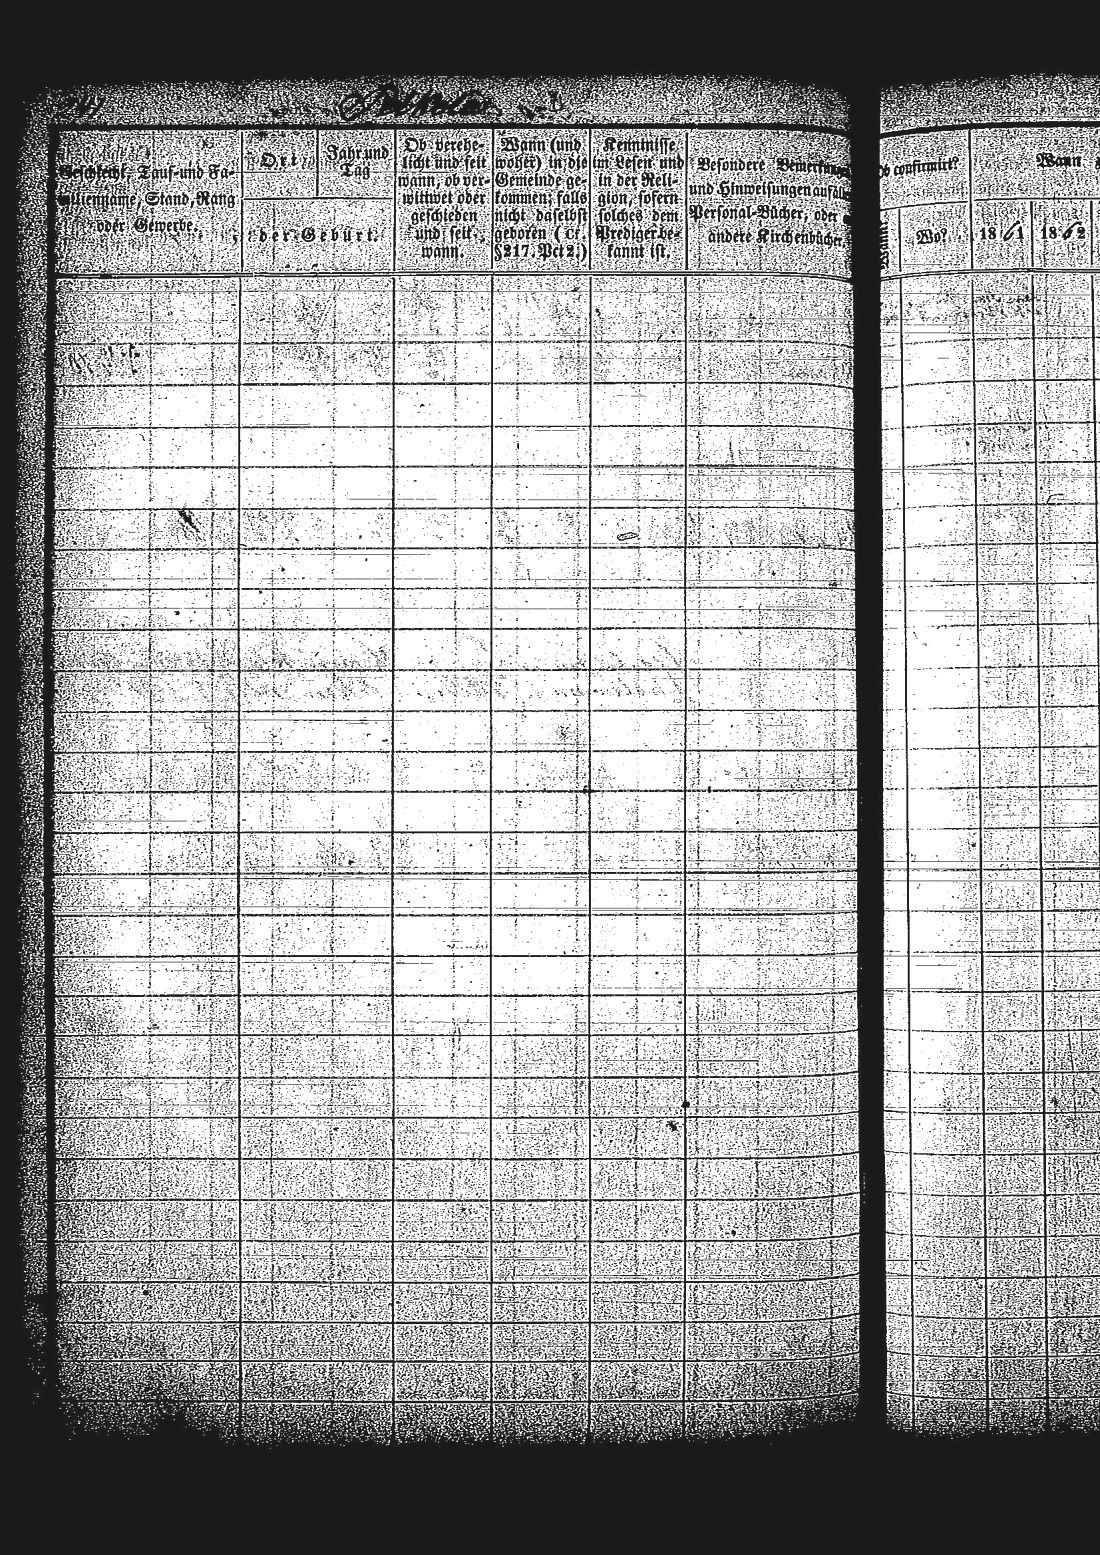 Geschlecht, Tauf- und Fa-
milienname, Stand, Rang
oder Gewerbe.
Ort
Jahr und
Tag
der Geburt.
Ob verehe-
licht und seit
wann, ob ver-
wittwet oder
geschieden
und seit
wann.
Wann (und
woher) in die
Gemeinde ge-
kommen; falls
nicht daselbst
geboren (cr.
§217. Pct 2.)
Kenntnisse
im Lesen und
in der Reli-
gion, sofern
solches dem
Prediger be-
kannt ist.
Besondere Bemerkungen
und Hinweisungen auf
Personal-Bücher, oder
andere Kirchenbücher.
Ob confirmirt?
Wann?
Wo?
Wann
1861
1862